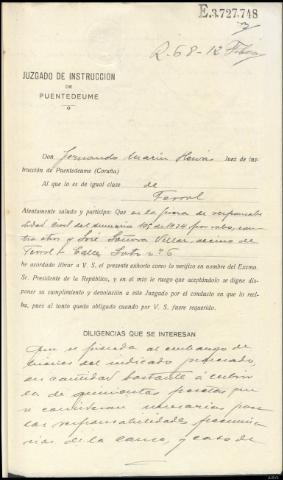 E.3.727.748
R-68-12
JUZGADO DE INSTRUCCIÓN
DE
PUENTEDEUME
Don Fernando Marin Juez de ins-
trucción de Puentedeume (Coruña)
Al que lo es de igual clase de
Ferrol
Atentamente saludo y participo: Que en la pieza de responsabi-
lidad civil del sumario 105 de 1934 por robo, con-
tra otro y José Villar, vecino de
Ferrol nº 6
he acordado librar a V. S. el presente exhorto como lo verifico en nombre del Excmo.
Sr. Presidente de la República, y en el mío le ruego que aceptándolo se digne dispo-
ner su cumplimiento y devolución a este Juzgado por el conducto en que lo reci-
ba, pues al tanto quedo obligado cuando por V. S. fuere requerido.
DILIGENCIAS QUE SE INTERESAN
Que se proceda al embargo de
bienes del indicado procesado,
en cantidad bastante á cubrir
la de quinientas pesetas que
se consideran necesarias para
las responsabilidades pecunia-
rias de la causa, y caso de